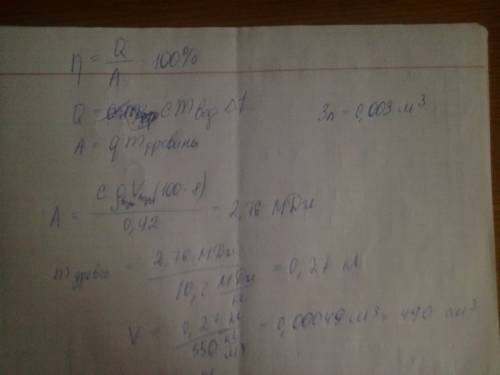 η = Q/A 100%
Q = c m вод Δt
3л = 0,003 м³
A = q m дровины
A = c ρ V (100-8) / 0,42 = 2,76 МДж
m древес = 2,76 МДж / 10,2 МДж/кг = 0,27 кг
V = 0,27 кг / 550 кг/м³ = 0,00049 м³ = 490 см³